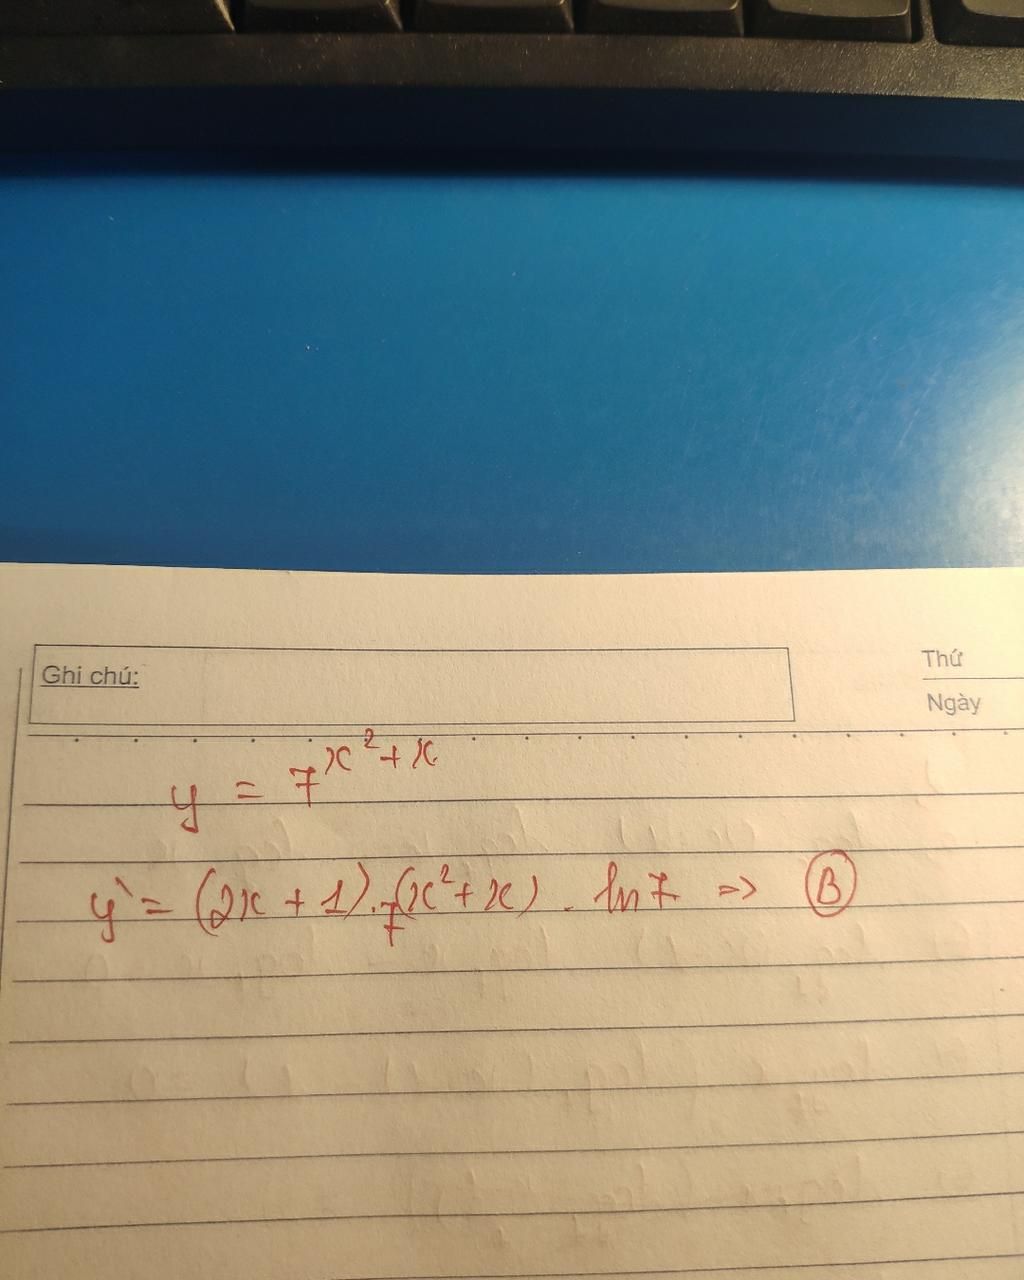 Ghi chú:
Thứ
Ngày
y = 7^{x^2+x}
y' = (2x + 1).7^{(x^2+x)} . ln 7 => B